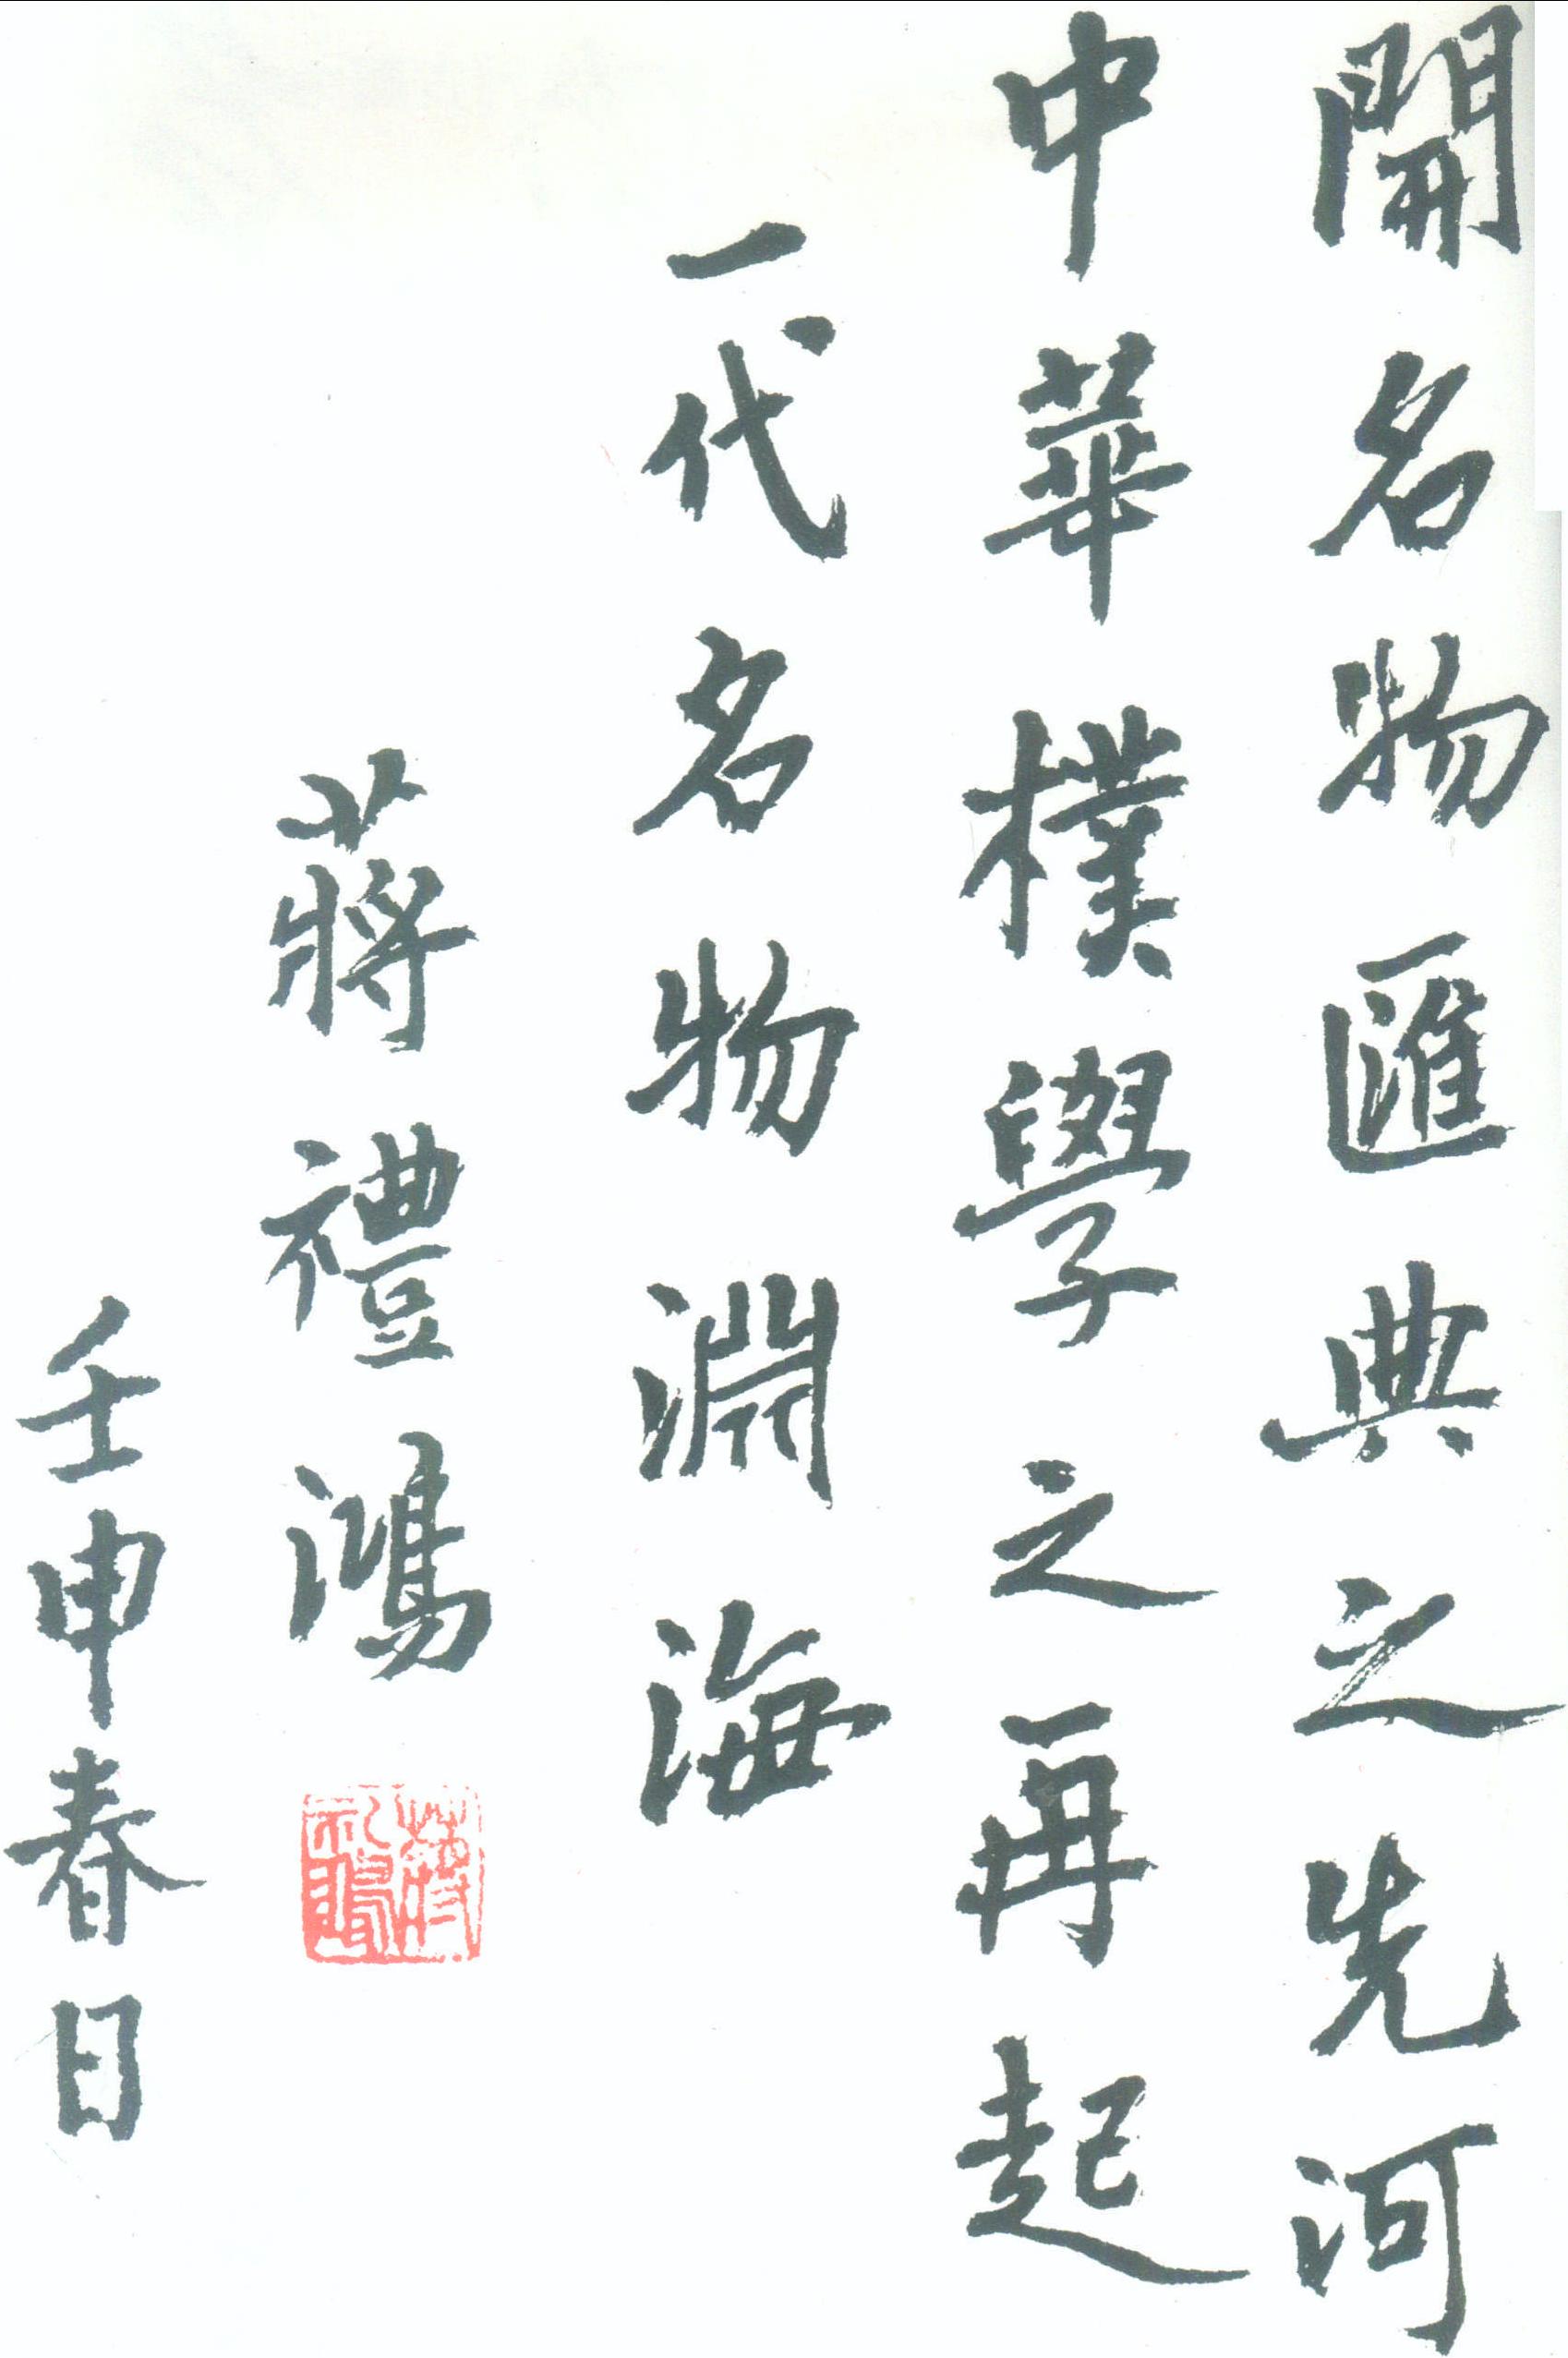 開名物匯典之先河
中華樸學之再起
一代名物淵海
蔣禮鴻
蔣禮鴻
壬申春日